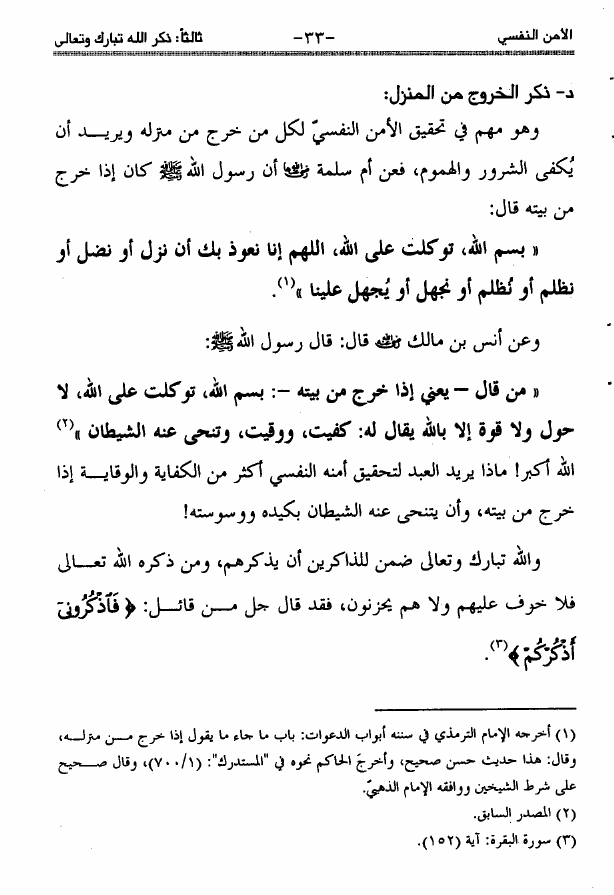 الأمن النفسي -٣٣- ثالثاً: ذكر الله تبارك وتعالى
د- ذكر الخروج من المنزل:
وهو مهم في تحقيق الأمن النفسيّ لكل من خرج من منزله ويريد أن
يُكفى الشرور والهموم، فعن أم سلمة رضي الله عنها أن رسول الله ﷺ كان إذا خرج
من بيته قال:
« بسم الله، توكلت على الله، اللهم إنا نعوذ بك أن نزل أو نضل أو
نظلم أو نُظلم أو نجهل أو يُجهل علينا »(١).
وعن أنس بن مالك رضي الله عنه قال: قال رسول الله ﷺ:
« من قال – يعني إذا خرج من بيته –: بسم الله، توكلت على الله، لا
حول ولا قوة إلا بالله يقال له: كفيت، ووقيت، وتنحى عنه الشيطان »(٢)
الله أكبر! ماذا يريد العبد لتحقيق أمنه النفسي أكثر من الكفاية والوقاية إذا
خرج من بيته، وأن يتنحى عنه الشيطان بكيده ووسوسته!
والله تبارك وتعالى ضمن للذاكرين أن يذكرهم، ومن ذكره الله تعالى
فلا خوف عليهم ولا هم يحزنون، فقد قال جل من قائل: ﴿ فَٱذۡكُرُونِيٓ
أَذۡكُرۡكُمۡ ﴾(٣).
(١) أخرجه الإمام الترمذي في سننه أبواب الدعوات: باب ما جاء ما يقول إذا خرج من منزله،
وقال: هذا حديث حسن صحيح، وأخرجَ الحاكم نحوه في "المستدرك": (٧٠٠/١)، وقال صحيح
على شرط الشيخين ووافقه الإمام الذهبيّ.
(٢) المصدر السابق.
(٣) سورة البقرة: آية (١٥٢).